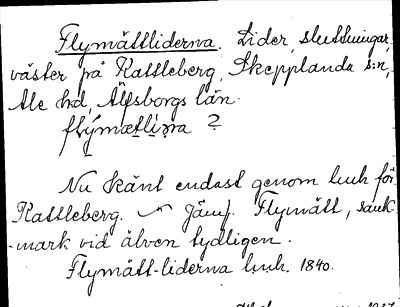 Flymåttliderna. Lider, sluttningar,
väster på Kattleberg, Skepplanda s:n,
Ale hd, Älfsborgs län.
flýmætliṇa ?
Nu känt endast genom lmh för
Kattleberg. Jämf. Flymått, sank-
-mark vid älven tydligen.
Flymått-liderna lmh. 1840.